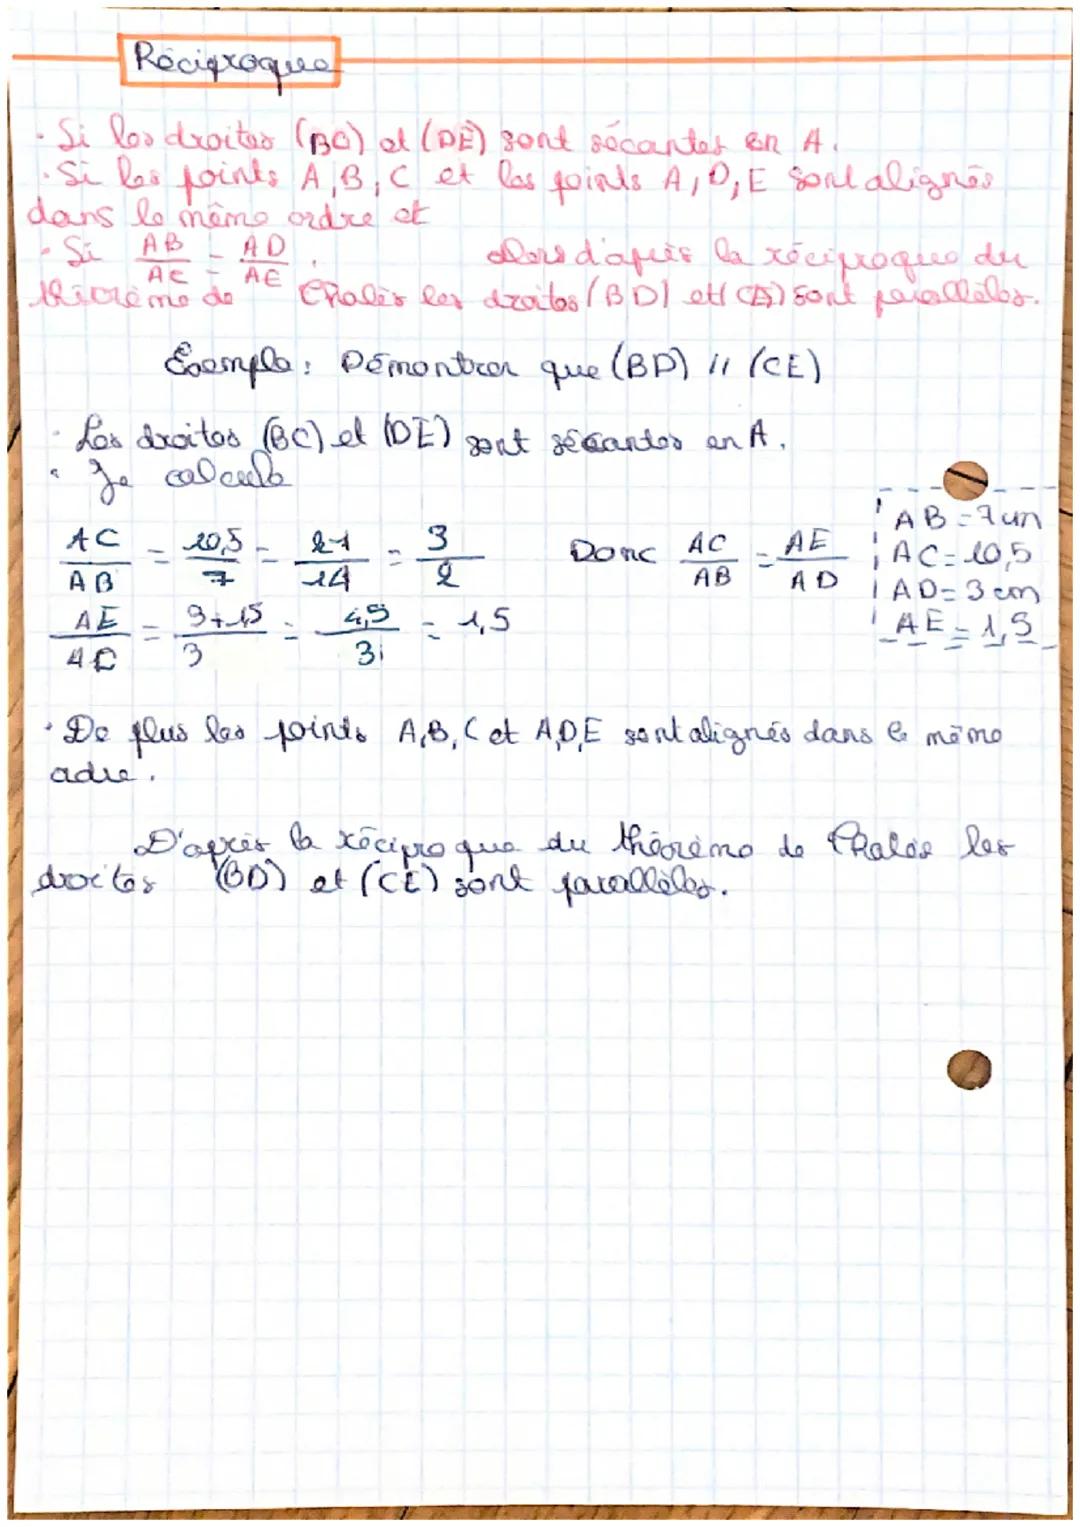 Réciproque
· Si les droites (BC) et (DE) sont sécantes en A.
· Si les points A, B, C et les points A, D, E sont alignés
dans le même ordre et
· Si AB/AC = AD/AE . Alors d'après la réciproque du
théorème de Thalès les droites (BD) et (CE) sont parallèles.
Exemple : Démontrer que (BD) // (CE)
· Les droites (BC) et (DE) sont sécantes en A.
· Je calcule
AC/AB = 10,5/7 = 21/14 = 3/2 Donc AC/AB = AE/AD
AE/AD = 3+1,5/3 = 4,5/3 = 1,5
AB = 7 cm
AC = 10,5
AD = 3 cm
AE = 1,5
· De plus les points A, B, C et A, D, E sont alignés dans le même
ordre.
D'après la réciproque du théorème de Thalès les
droites (BD) et (CE) sont parallèles.